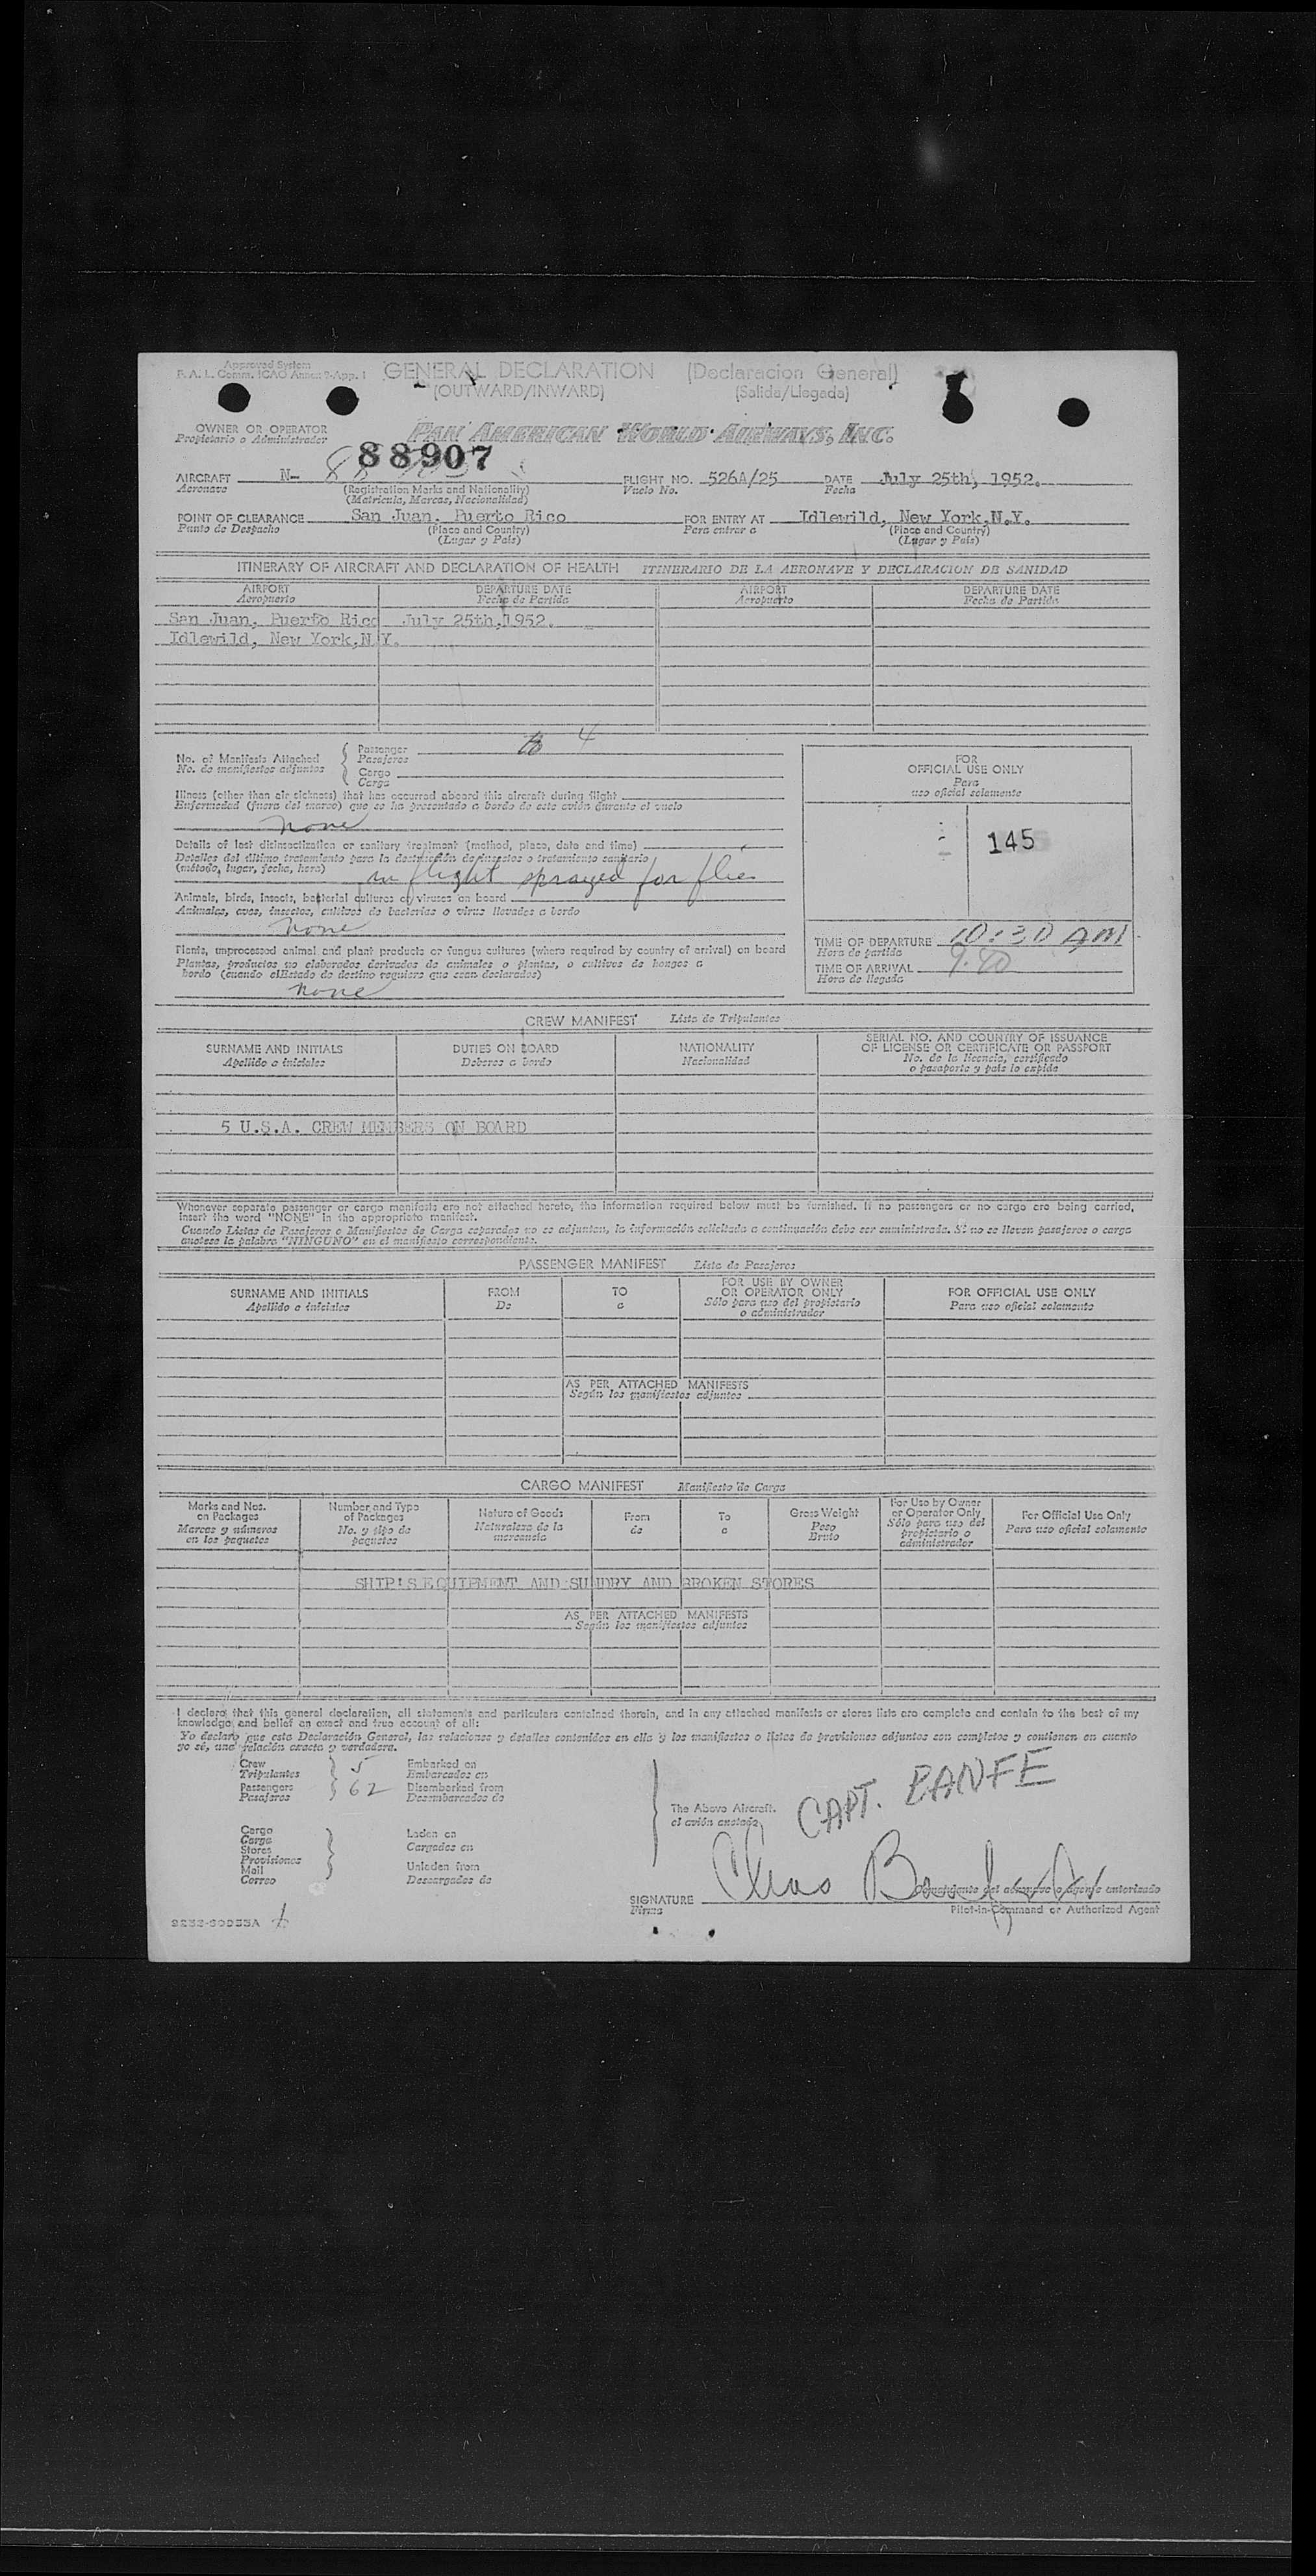 Approved System
F. A. L. Comm. ICAO Annex 9-App. 1
GENERAL DECLARATION (Declaracion General)
(OUTWARD/INWARD) (Salida/Llegada)
OWNER OR OPERATOR
Propietario o Administrador
PAN AMERICAN WORLD AIRWAYS, INC.
88907
AIRCRAFT N- FLIGHT NO. 526A/25 DATE July 25th, 1952.
Aeronave (Registration Marks and Nationality) Vuelo No. Fecha
(Matricula, Marcas, Nacionalidad)
POINT OF CLEARANCE San Juan, Puerto Rico FOR ENTRY AT Idlewild, New York,N.Y.
Punto de Despacho (Place and Country) Para entrar a (Place and Country)
(Lugar y Pais) (Lugar y Pais)
ITINERARY OF AIRCRAFT AND DECLARATION OF HEALTH ITINERARIO DE LA AERONAVE Y DECLARACION DE SANIDAD
AIRPORT DEPARTURE DATE AIRPORT DEPARTURE DATE
Aeropuerto Fecha de Partida Aeropuerto Fecha de Partida
San Juan, Puerto Rico July 25th,1952.
Idlewild, New York,N.Y.
No. of Manifests Attached
No. de manifiestos adjuntos
Passenger 4
Pasajeros
Cargo
Carga
Illness (other than air sickness) that has occurred aboard this aircraft during flight
Enfermedad (fuera del mareo) que se ha presentado a bordo de este avión durante el vuelo
none
Details of last disinsectization or sanitary treatment (method, place, date and time)
Detalles del último tratamiento para la destrucción de insectos o tratamiento sanitario
(método, lugar, fecha, hora) in flight sprayed for flies
Animals, birds, insects, bacterial cultures or viruses on board
Animales, aves, insectos, cultivos de bacterias o virus llevados a bordo
none
Plants, unprocessed animal and plant products or fungus cultures (where required by country of arrival) on board
Plantas, productos no elaborados derivados de animales o plantas, o cultivos de hongos a
bordo (cuando el Estado de destino requiere que sean declarados)
none
FOR
OFFICIAL USE ONLY
Para
uso oficial solamente
145
TIME OF DEPARTURE 10:30 AM
Hora de partida
TIME OF ARRIVAL
Hora de llegada
CREW MANIFEST Lista de Tripulantes
SURNAME AND INITIALS DUTIES ON BOARD NATIONALITY SERIAL NO. AND COUNTRY OF ISSUANCE
OF LICENSE OR CERTIFICATE OR PASSPORT
Apellido o iniciales Deberes a bordo Nacionalidad No. de la licencia, certificado
o pasaporte y pais lo expida
5 U.S.A. CREW MEMBERS ON BOARD
Whenever separate passenger or cargo manifests are not attached hereto, the information required below must be furnished. If no passengers or no cargo are being carried,
insert the word "NONE" in the appropriate manifest.
Cuando Listas de Pasajeros o Manifiestos de Carga separados no se adjuntan, la información solicitada a continuación debe ser suministrada. Si no se llevan pasajeros o carga
anotese la palabra "NINGUNO" en el manifiesto correspondiente.
PASSENGER MANIFEST Lista de Pasajeros
SURNAME AND INITIALS FROM TO FOR USE BY OWNER
OR OPERATOR ONLY FOR OFFICIAL USE ONLY
Apellido o iniciales De a Sólo para uso del propietario
o administrador Para uso oficial solamente
AS PER ATTACHED MANIFESTS
Según los manifiestos adjuntos
CARGO MANIFEST Manifiesto de Carga
Marks and Nos.
on Packages
Marcas y números
en los paquetes
Number and Type
of Packages
No. y tipo de
paquetes
Nature of Goods
Naturaleza de la
mercancia
From
de
To
a
Gross Weight
Peso
Bruto
For Use by Owner
or Operator Only
Sólo para uso del
propietario o
administrador
For Official Use Only
Para uso oficial solamente
SHIP'S EQUIPMENT AND SUNDRY AND BROKEN STORES
AS PER ATTACHED MANIFESTS
Según los manifiestos adjuntos
I declare that this general declaration, all statements and particulars contained therein, and in any attached manifests or stores lists are complete and contain to the best of my
knowledge and belief an exact and true account of all:
Yo declaro que esta Declaración General, las relaciones y detalles contenidos en ella y los manifiestos o listas de provisiones adjuntos son completos y contienen en cuanto
yo sé, una relación exacta y verdadera.
Crew 5 Embarked on
Tripulantes Embarcados en
Passengers 62 Disembarked from
Pasajeros Desembarcados de
Cargo
Carga
Stores
Provisiones
Mail
Correo
Laden on
Cargados en
Unladen from
Descargados de
The Above Aircraft.
el avión anotado
CAPT. BANFE
SIGNATURE Chas
Firma
Comandante del aeronave o agente autorizado
Pilot-in-Command or Authorized Agent